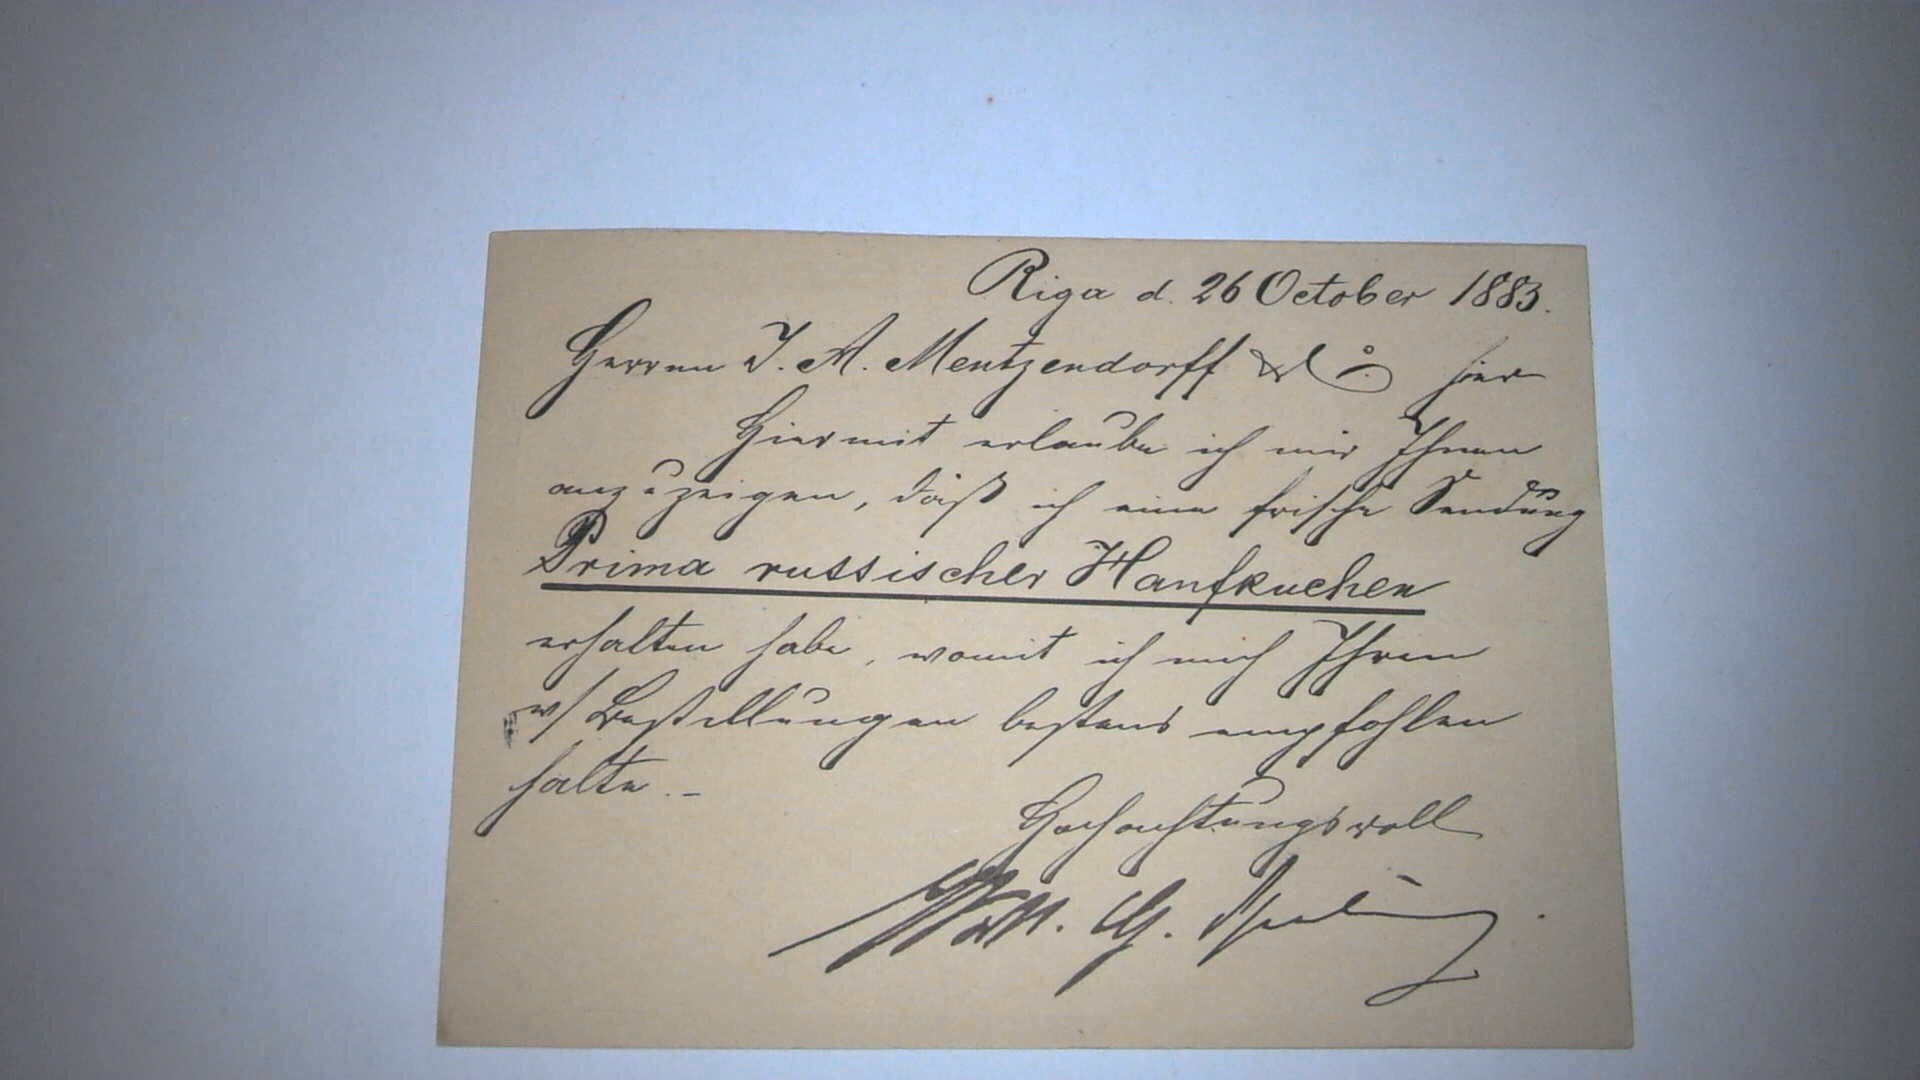 Riga d. 26 October 1883.
Herren J. A. Mentzendorff & Co. hier
Hiermit erlaube ich mir Ihnen
anzuzeigen, daß ich eine frische Sendung
Prima russischer Hanfkuchen
erhalten habe, womit ich mich Ihren
w/ Bestellungen bestens empfohlen
halte. –
Hochachtungsvoll
G.